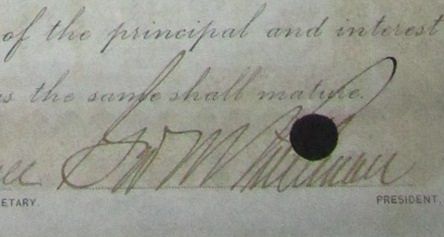 of the principal and interest
the same shall mature.
ETARY. PRESIDENT.